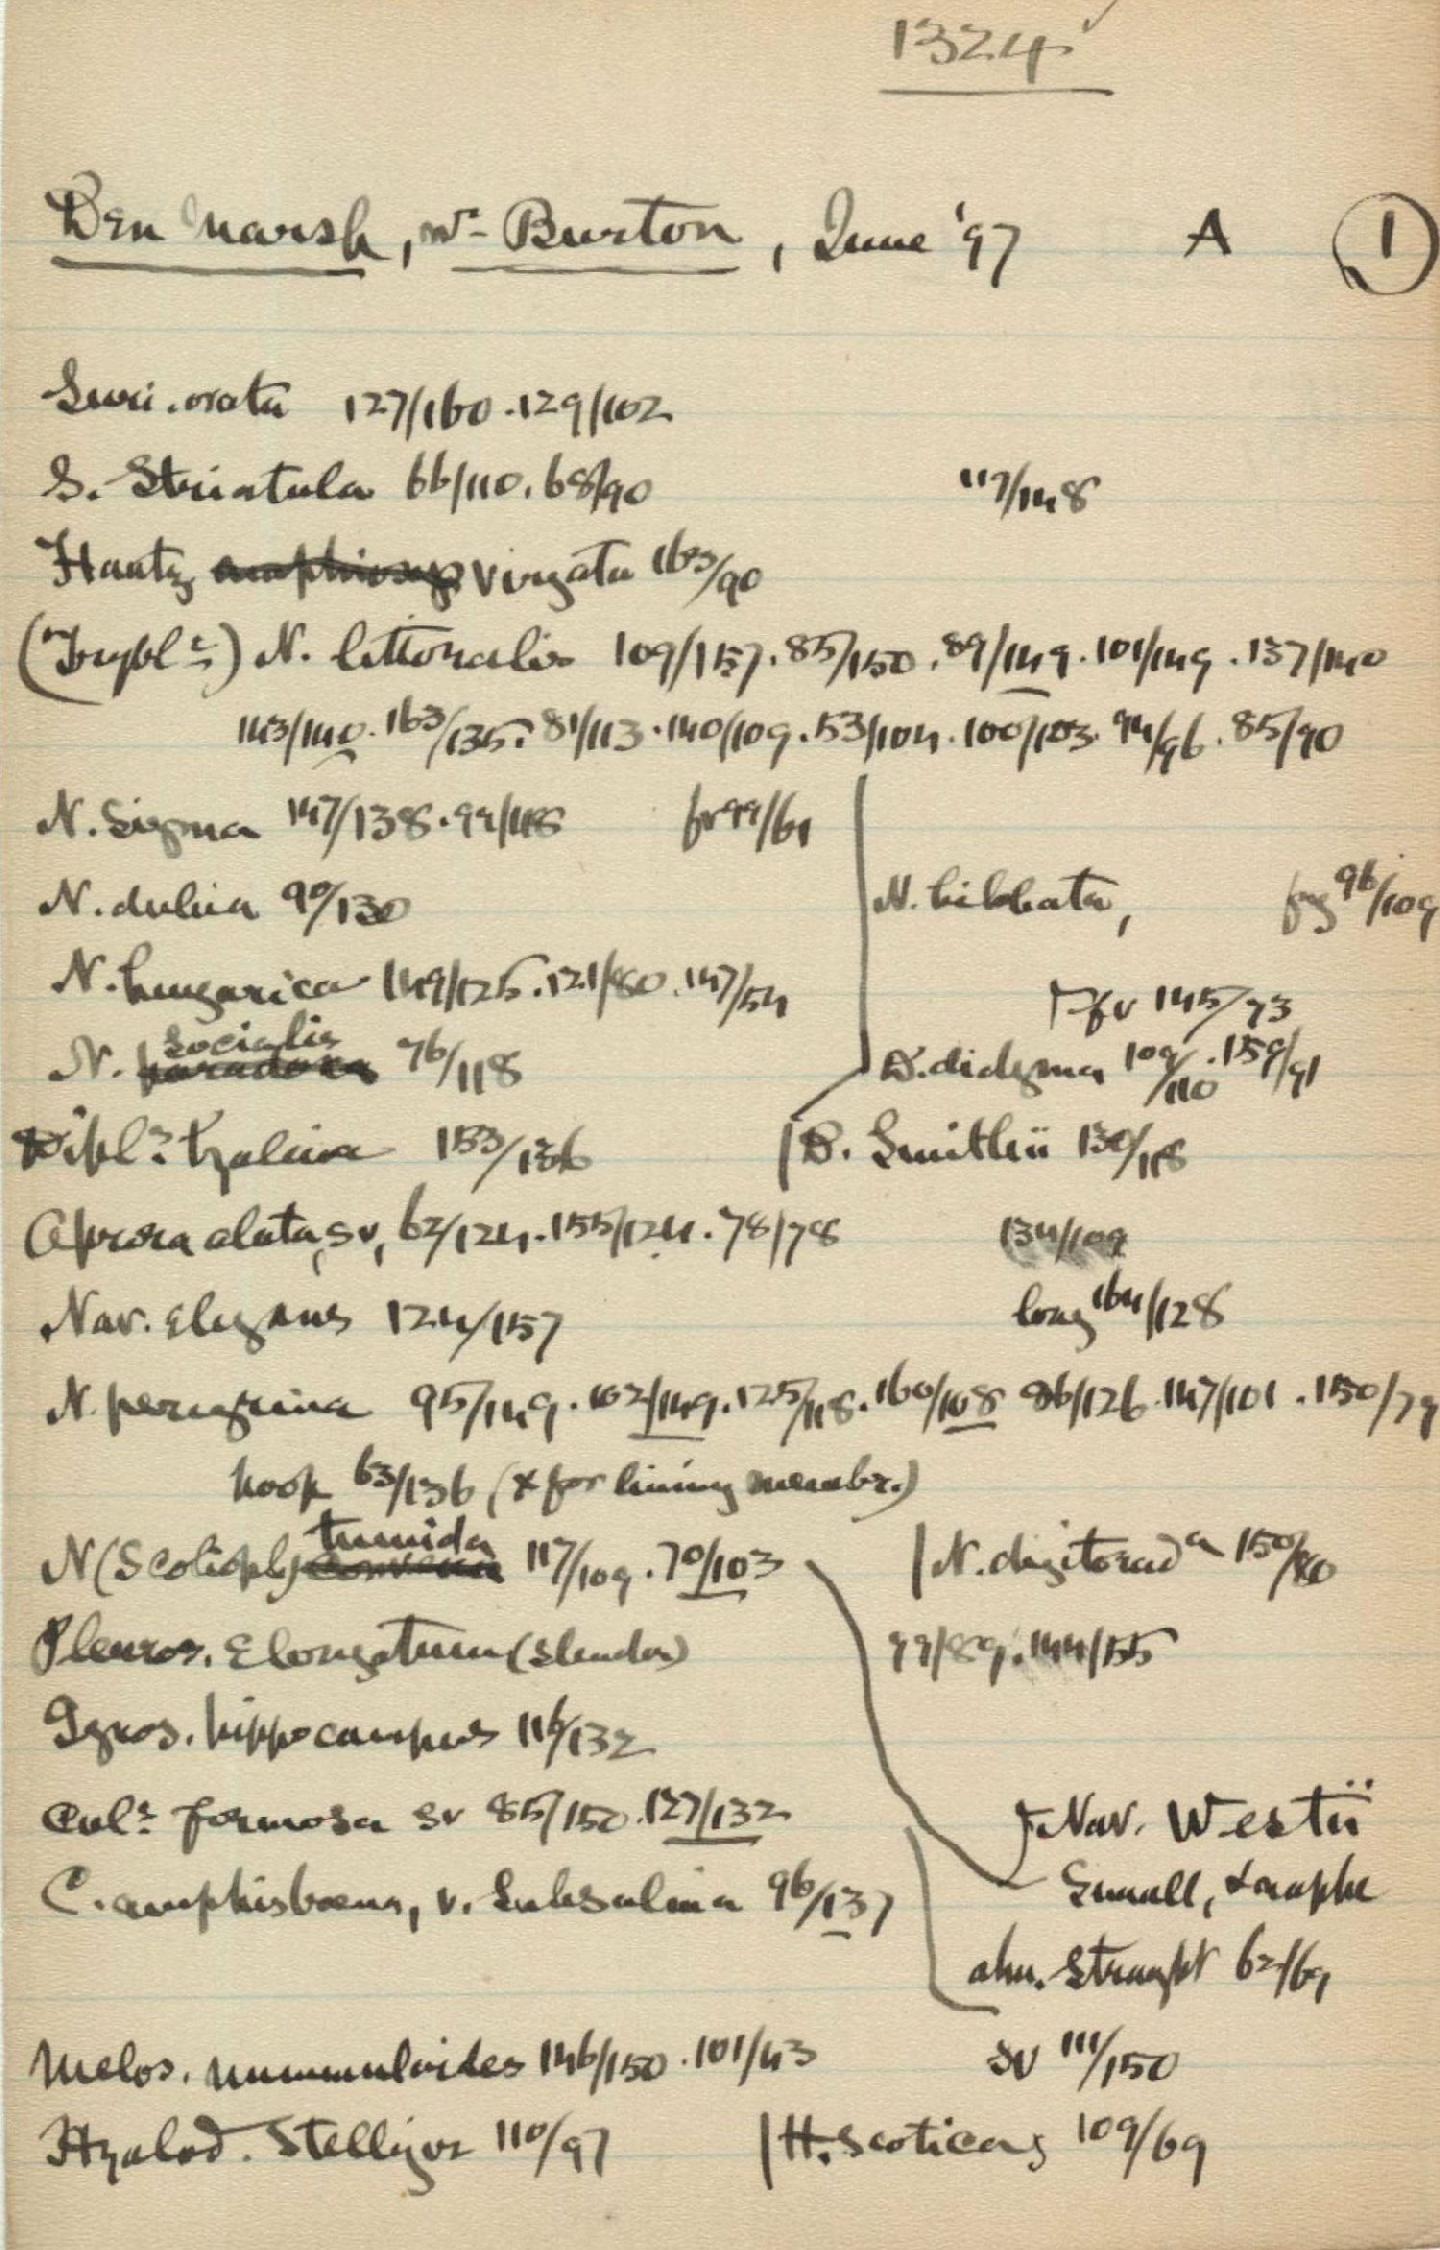 1324 ✓
Ben Marsh, nr Burton, June '97 A 1
Suri. ovata 127/160 . 129/102
S. Striatula 66/110 . 68/90 117/148
Hantz virgata 163/90
(Trybl:) N. littoralis 109/157 . 85/150 . 89/149 . 101/149 . 137/140
143/140 . 163/135 . 81/113 . 140/109 . 53/104 . 100/103 . 94/96 . 85/90
N. Sigma 147/138 . 99/118 fr 99/61
N. dubia 90/130 N. bilobata, frg 96/109
N. hungarica 149/125 . 121/80 . 147/54 fr 145/73
N. socialis 76/118 D. didyma 109/110 . 159/91
Dipl: hyalina 153/136 D. Smithii 130/118
alata, sv, 62/124 . 155/124 . 78/78 134/109
Nav. Elegans 124/157 long 164/128
N. peregrina 95/149 . 102/149 . 125/118 . 160/108 86/126 . 147/101 . 150/79
hook 63/136 (& for lining membr.)
N (Scoliopl) tumida 117/109 . 70/103 N. digitorada 150/80
Pleuros. Elongatum (slender) 99/89 . 144/155
Gyros. hippocampus 116/132
formosa sv 85/150 . 127/132 Nav. Westii
C. amphisbaena, v. Subsalina 96/137 Small,
Straight 62/69
Melos. nummuloides 146/150 . 101/43 sv 111/150
Hyalod. Stelliger 110/97 H. Scoticus 109/69